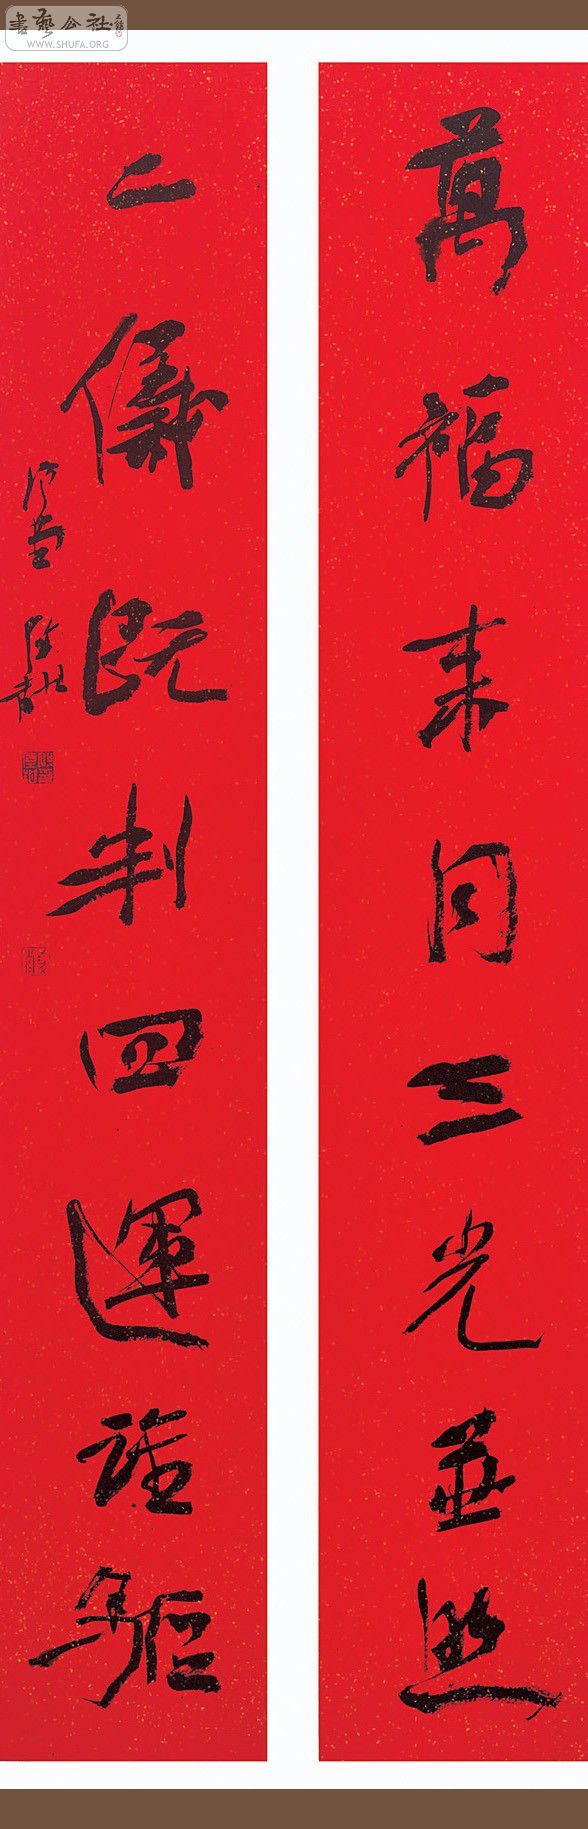 萬福來同三光並照
二儀既判四運誰驅
書藝公社
WWW.SHUFA.ORG